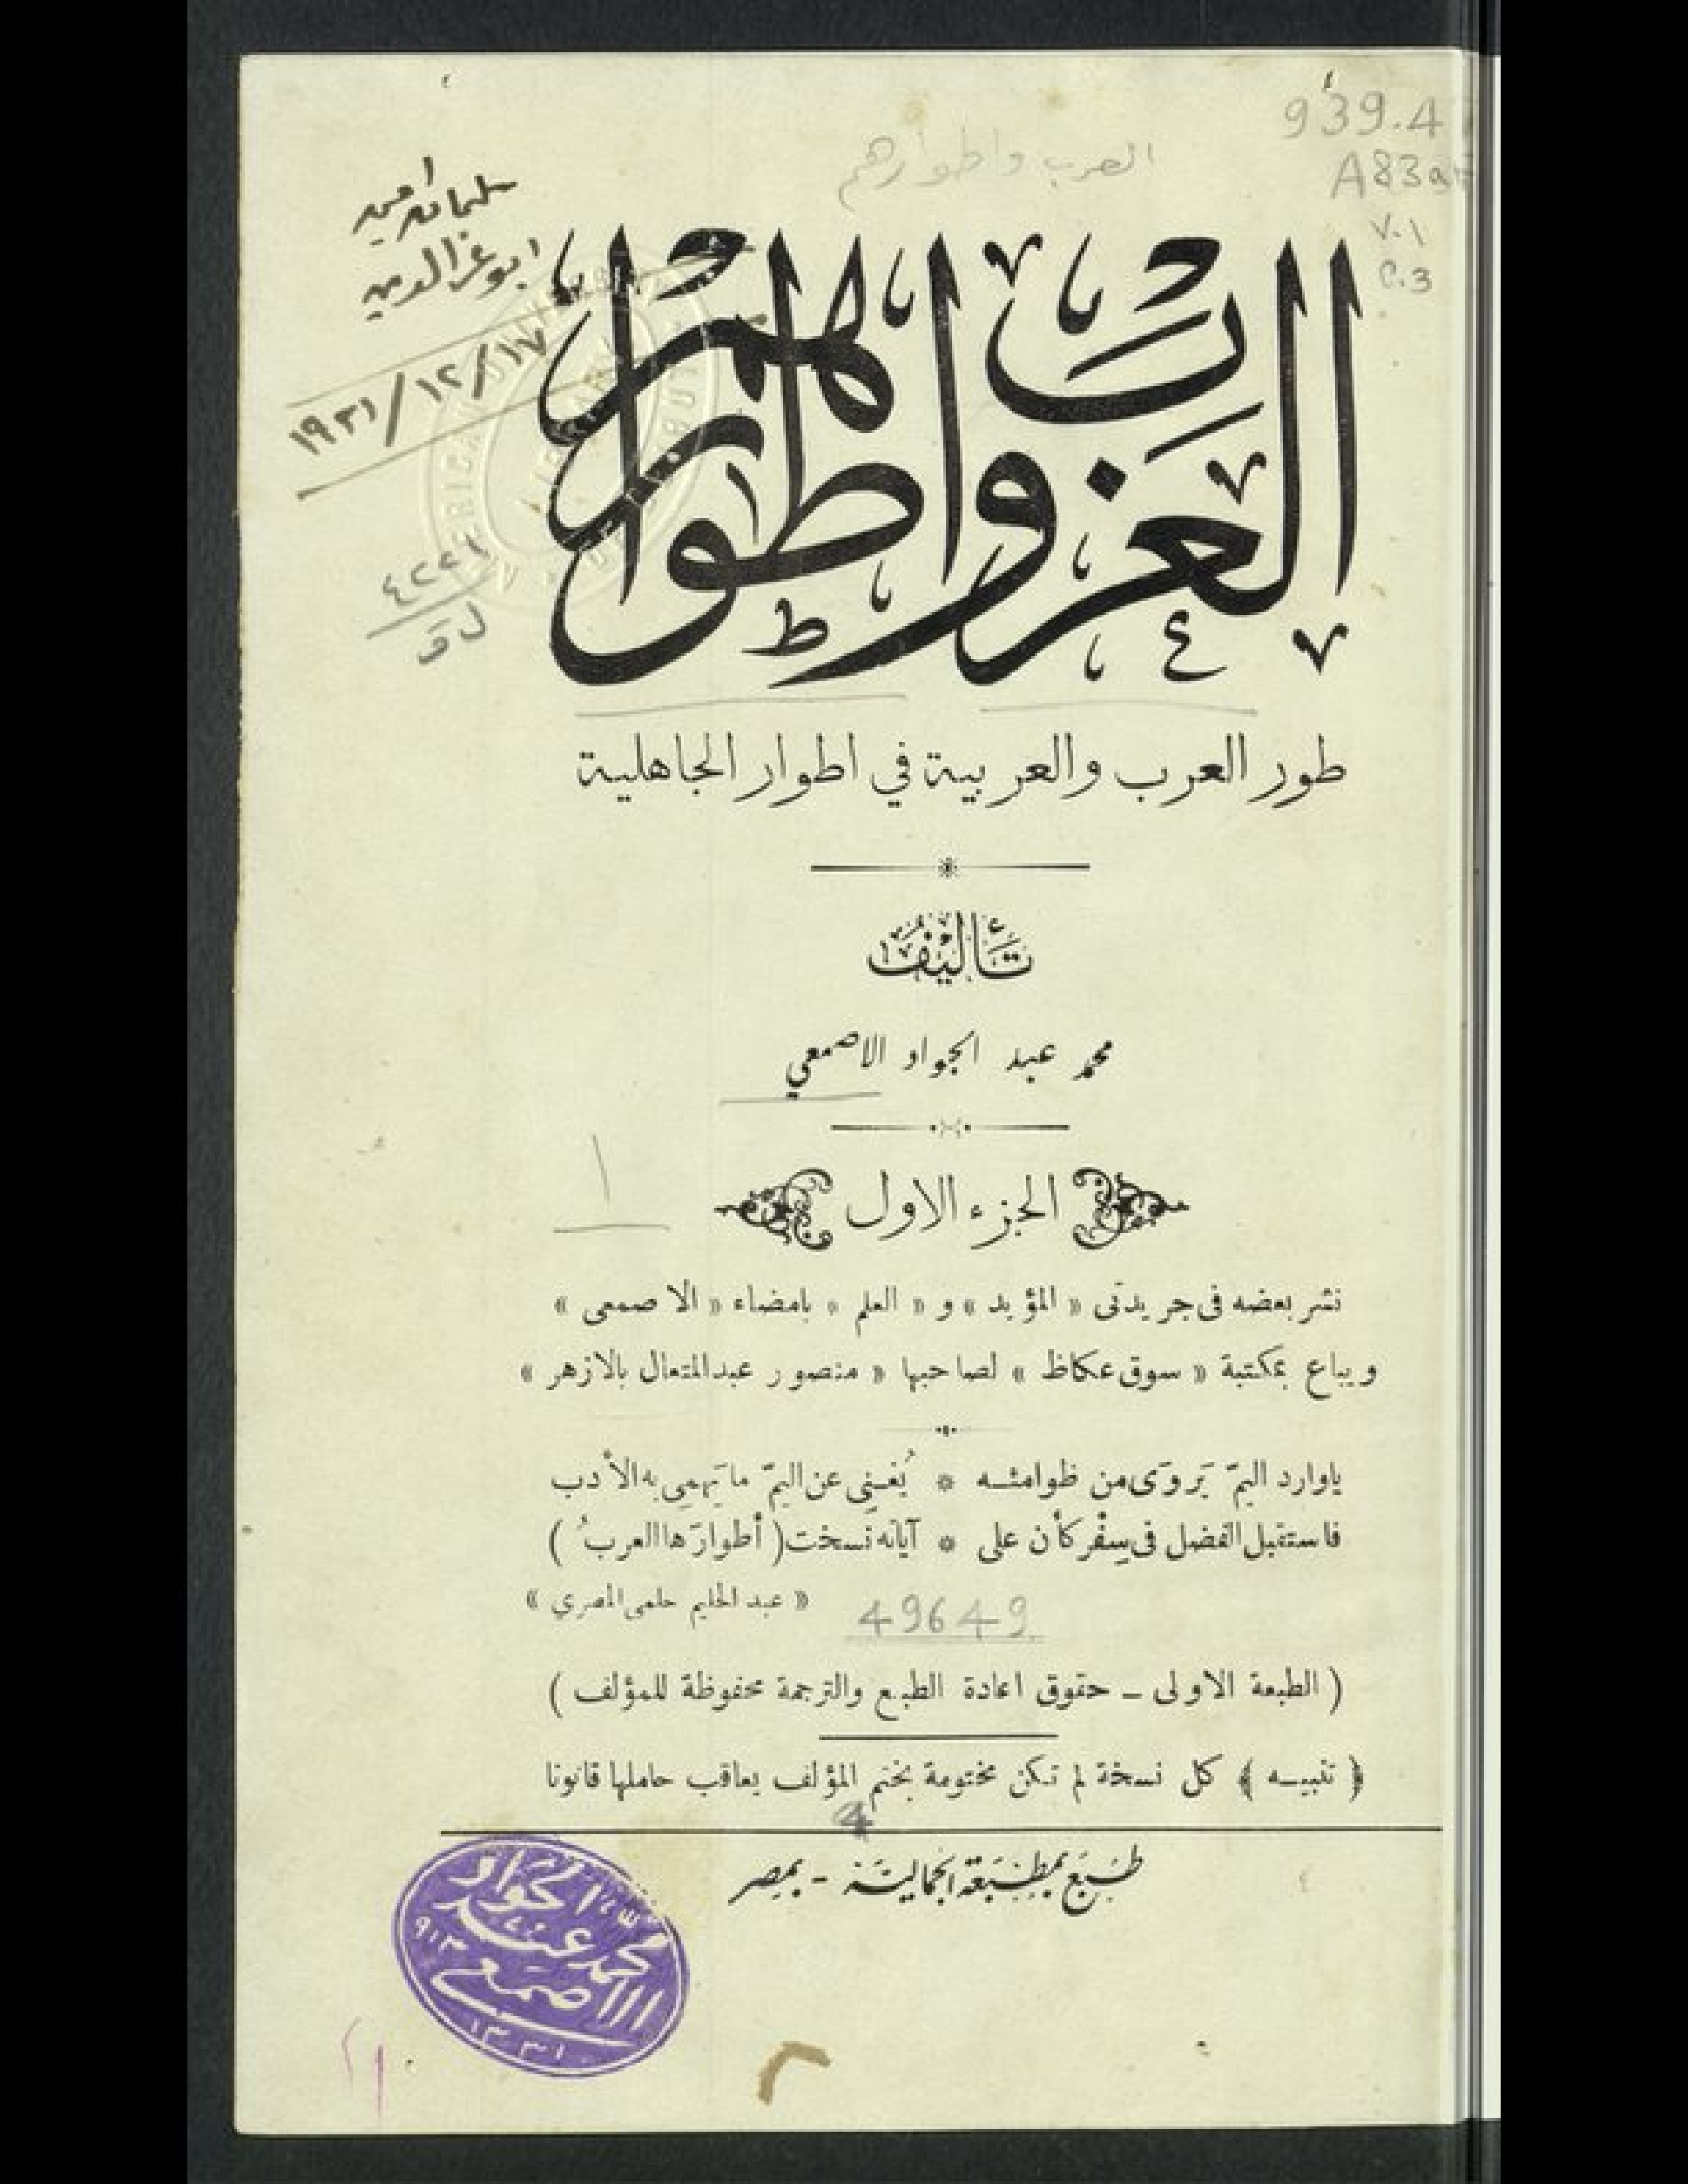 939.4
A83aA
v.1
c.3
العرب واطوارهم
سليمان امين
ابو عز الدين
١٩٣١/١٢/١٧
العرب واطوارهم
٤٢٢١
طور العرب والعربية في اطوار الجاهلية
تأليف
محمد عبد الجواد الاصمعي
١
الجزء الاول
نشر بعضه فى جريدتى « المؤيد » و « العلم » بامضاء « الاصمعى »
ويباع بمكتبة « سوق عكاظ » لصاحبها « منصور عبدالمتعال بالازهر »
ياوارد اليمّ يَروَى من ظوامئه * يُغنِى عن اليمّ ما يَهمِى به الأدب
فاستقبل الفضل فى سِفْر كأن على * آياته نسخت ( أطوارَها العربُ )
« عبد الحليم حلمى المصري »
49649
( الطبعة الاولى – حقوق اعادة الطبع والترجمة محفوظة للمؤلف )
﴿ تنبيه ﴾ كل نسخة لم تكن مختومة بختم المؤلف يعاقب حاملها قانونا
4
طبع بمطبعة الجمالية - بمصر
محمد عبد الجواد
الاصمعي
٩١٣
١٣٣١